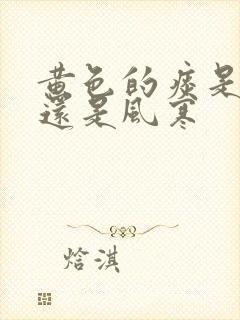 黄色的痰是
還是風寒
焓淇